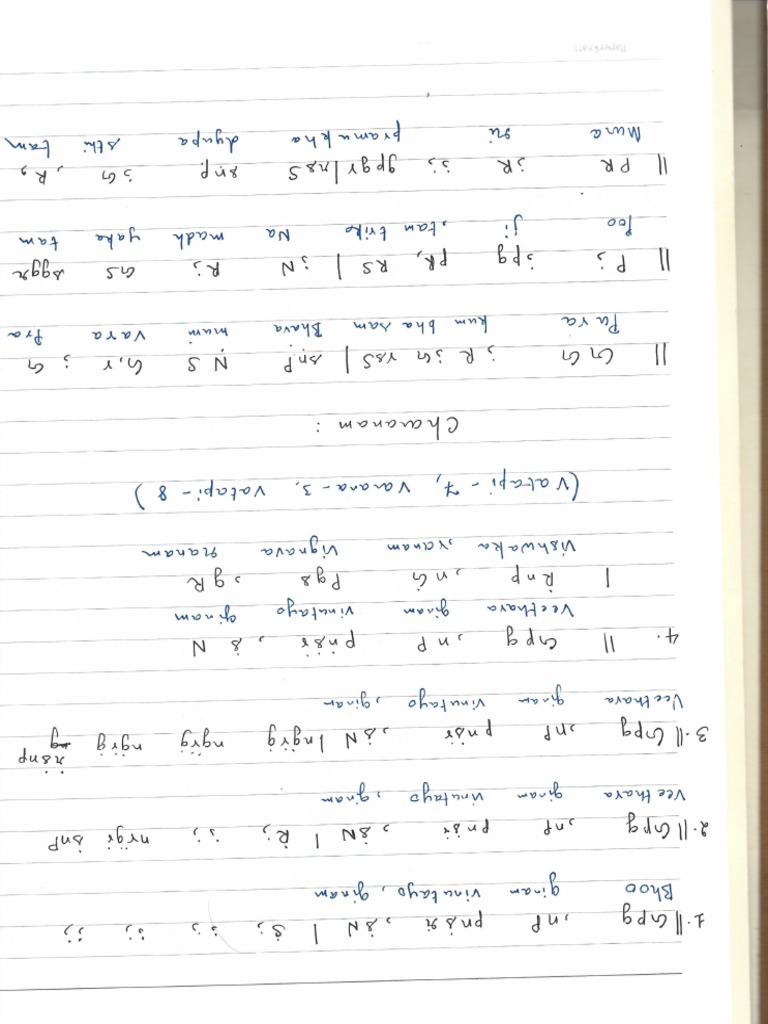 1. || Gpg ,np pnṡṙ ,ṡN | Ṡ; ;; ;; ;;
Bhoo ginam vinutayo, ginam
2. || Gpg ,np pnṡṙ ,ṡN | Ṙ; ;, nṙġṙ ṡnP
Veethara ginam vinutayo ,ginam
3. || Gpg ,np pnṡṙ ,ṡN | nġṙġ nġṙġ nġṙġ ṙṡnp
Veethara ginam vinutayo ,ginam
4. || Gpg ,np pnṡṙ ,ṡ N
Veethara ginam vinutayo ginam
| Ṙnp ,nĠ Pgs ,gR
Vishwaka ,ranam vignava ranam
(Vatapi - 7, Varana - 3, Vatapi - 8)
Charanam :
|| G G ; R ;G rsS | snP Ṇ S G,r ; G
Pura kum bha sam Bhava muni vara Pra
|| P ; ;pg PR, RS | ;N R; GS sggr
Poo ji ,tam triko Na madh yaka tam
|| PR ;R ;; gpgr | rsS snp ;G ,R,
Mura ri pramukha dyupa sthi tam
Paperkraft